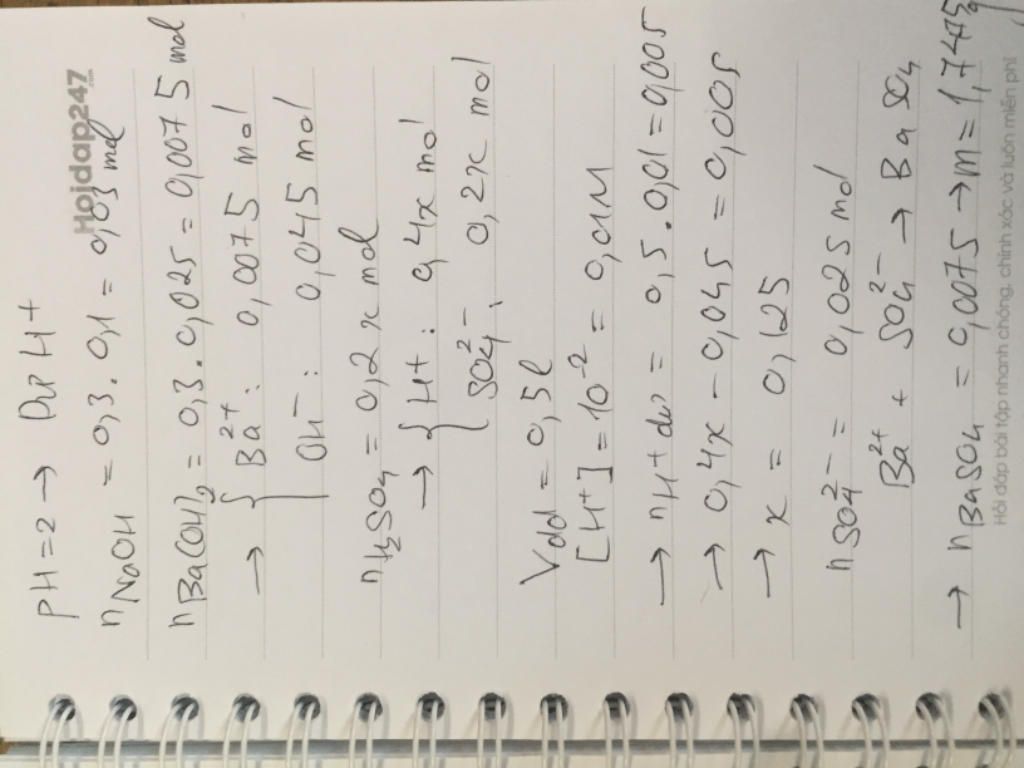 Hoidap247
.com
PH = 2 → Dư H+
nNaOH = 0,3 . 0,1 = 0,03 mol
nBa(OH)2 = 0,3 . 0,025 = 0,0075 mol
→ { Ba2+ : 0,0075 mol
OH− : 0,045 mol
nH2SO4 = 0,2x mol
→ { H+ : 0,4x mol
SO42− : 0,2x mol
Vdd = 0,5l
[H+] = 10−2 = 0,01M
→ nH+ dư = 0,5 . 0,01 = 0,005
→ 0,4x − 0,045 = 0,005
→ x = 0,125
nSO42− = 0,025 mol
Ba2+ + SO42− → BaSO4
→ nBaSO4 = 0,0075 → m = 1,7475g
Hỏi đáp bài tập nhanh chóng, chính xác và luôn miễn phí